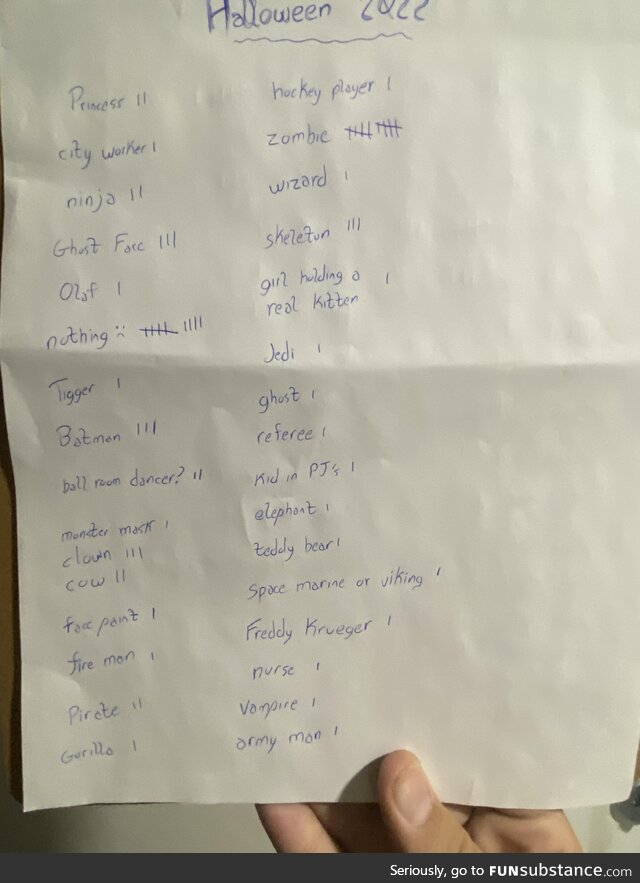 Halloween 2022
Princess II
city worker I
ninja II
Ghost Face III
Olaf I
nothing :( 卌 IIII
Tigger I
Batman III
ball room dancer? II
monster mask I
clown III
cow II
face paint I
fire man I
Pirate II
Gorilla I
hockey player I
zombie 卌 卌
wizard I
skeleton III
girl holding a I
real kitten
Jedi I
ghost I
referee I
Kid in PJ's I
elephant I
teddy bear I
Space marine or viking I
Freddy Krueger I
nurse I
Vampire I
army man I
Seriously, go to FUNsubstance.com